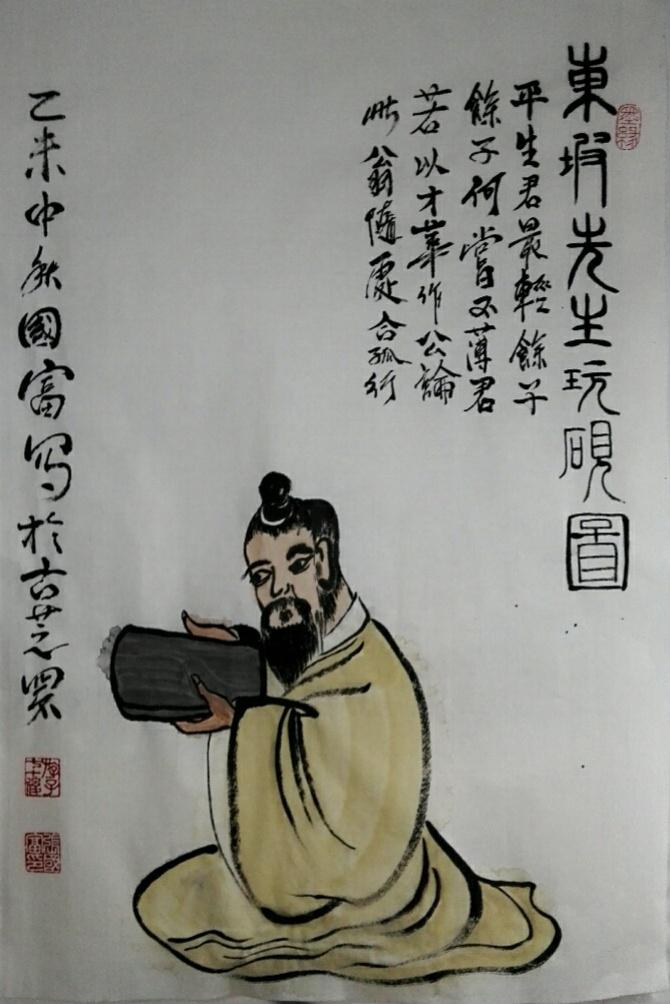 東坡先生玩硯圖
平生君最輕餘子
餘子何嘗不薄君
若以才華作公論
此翁隨處合孤行
乙未中秋國富寫於古芝罘
張國富印